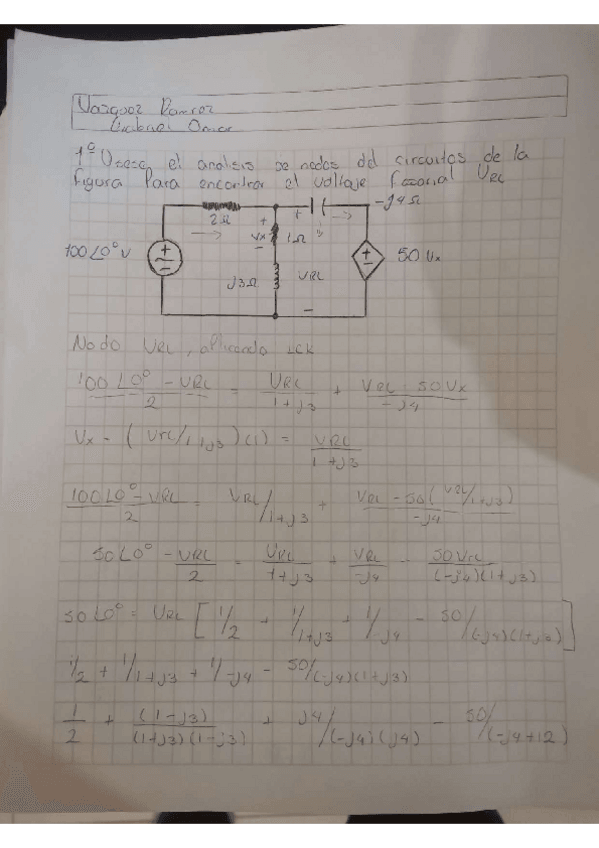 Vazquez Ramirez
Gabriel Omar
1º Usese el analisis de nodos del circuitos de la
figura Para encontrar el voltaje fasorial VRL
2Ω
+
+
-J4Ω
Vx
1Ω
-
100∠0° V
+
-
J3Ω
VRL
-
+
-
50 Vx
Nodo VRL, aplicando LCK
100∠0° - VRL / 2 = VRL / 1+j3 + VRL - 50Vx / -j4
Vx = (Vrl/1+j3)(1) = VRL / 1+j3
100∠0° - VRL / 2 = VRL/1+j3 + VRL - 50(VRL/1+j3) / -j4
50∠0° - VRL / 2 = VRL / 1+j3 + VRL / -j4 - 50VRL / (-j4)(1+j3)
50∠0° = VRL [ 1/2 + 1/1+j3 + 1/-j4 - 50/(-j4)(1+j3) ]
1/2 + 1/1+j3 + 1/-j4 - 50/(-j4)(1+j3)
1/2 + (1-j3) / (1+j3)(1-j3) + j4/(-j4)(j4) - 50/(-j4+12)